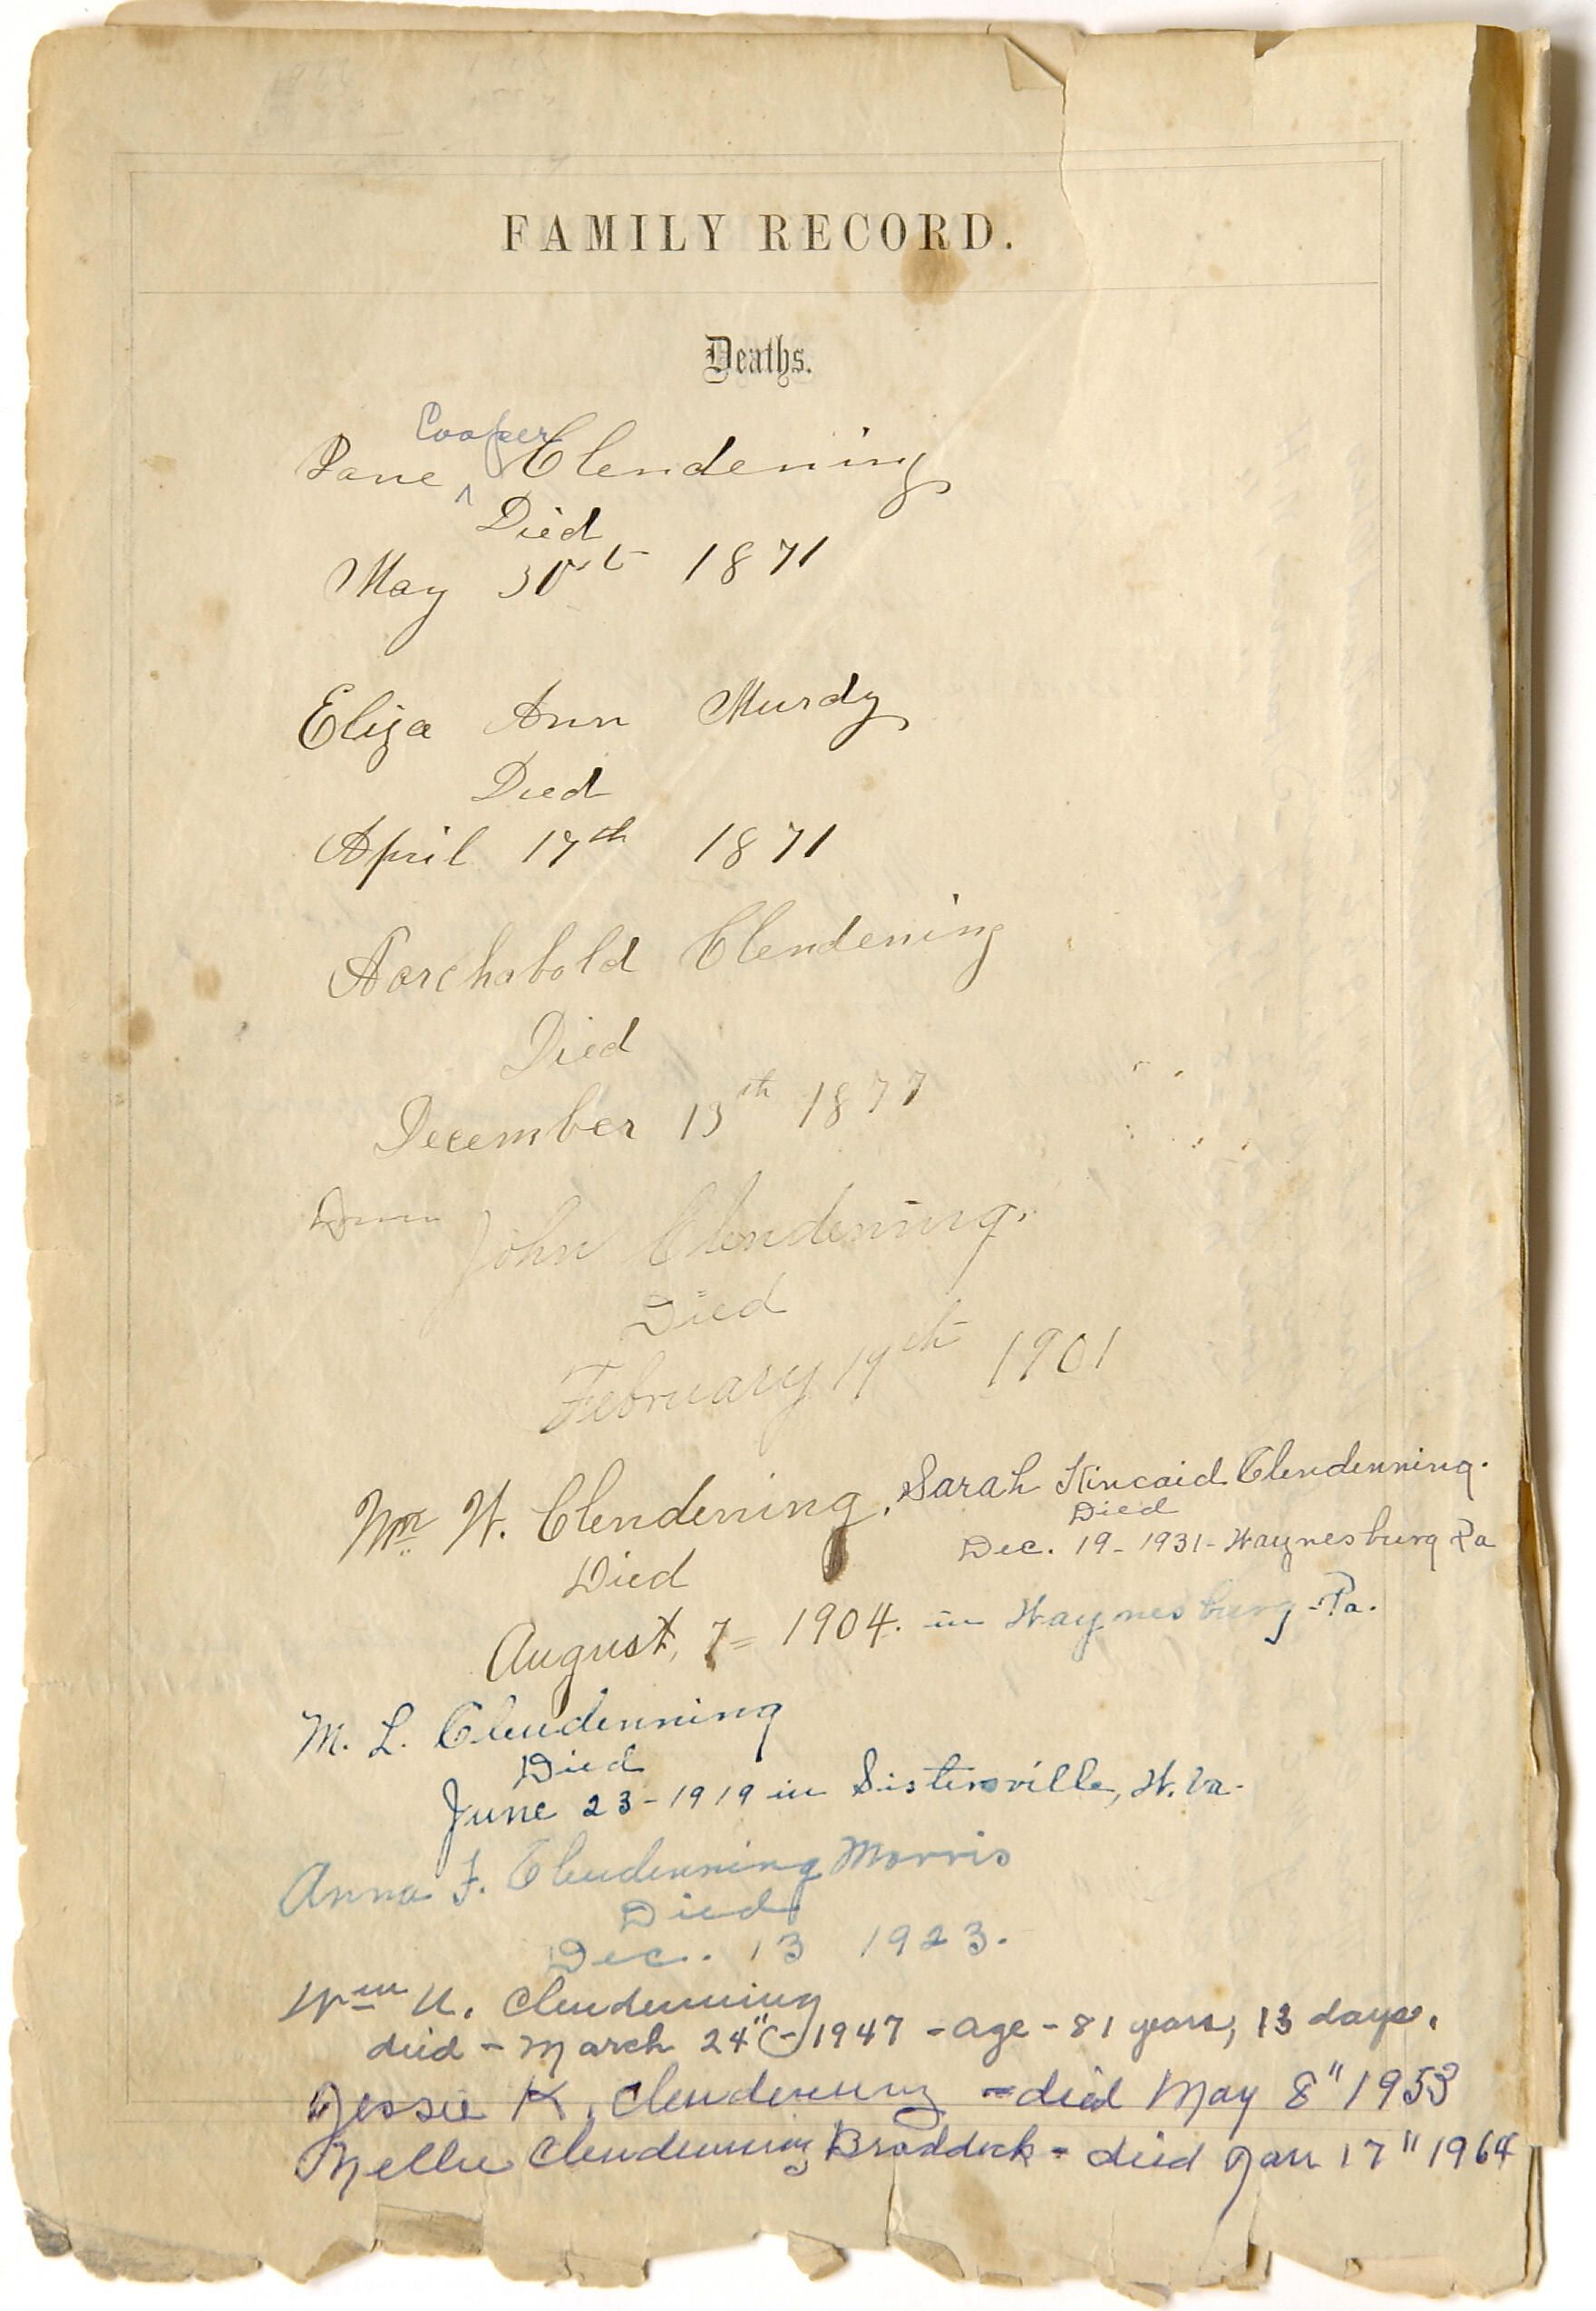 FAMILY RECORD.
Deaths.
Cooper
Jane ^ Clendening
Died
May 31st 1871
Eliza Ann Murdy
Died
April 17th 1871
Aarchabold Clendening
Died
December 13th 1877
John Clendening.
Died
February 17th 1901
Wm W. Clendening.
Died
August, 7= 1904. in Waynesburg-Pa.
Sarah Kincaid Clendenning.
Died
Dec. 19- 1931- Waynesburg Pa
M. L. Clendenning
Died
June 23-1919 in Sistersville, W. Va-
Anna F. Clendenning Morris
Died
Dec. 13 1923.
Wm U. Clendenning
died - March 24" - 1947 - age - 81 years, 13 days.
Jessie K. Clendenning - died May 8" 1953
Nellie Clendenning Braddock - died Jan 17" 1964